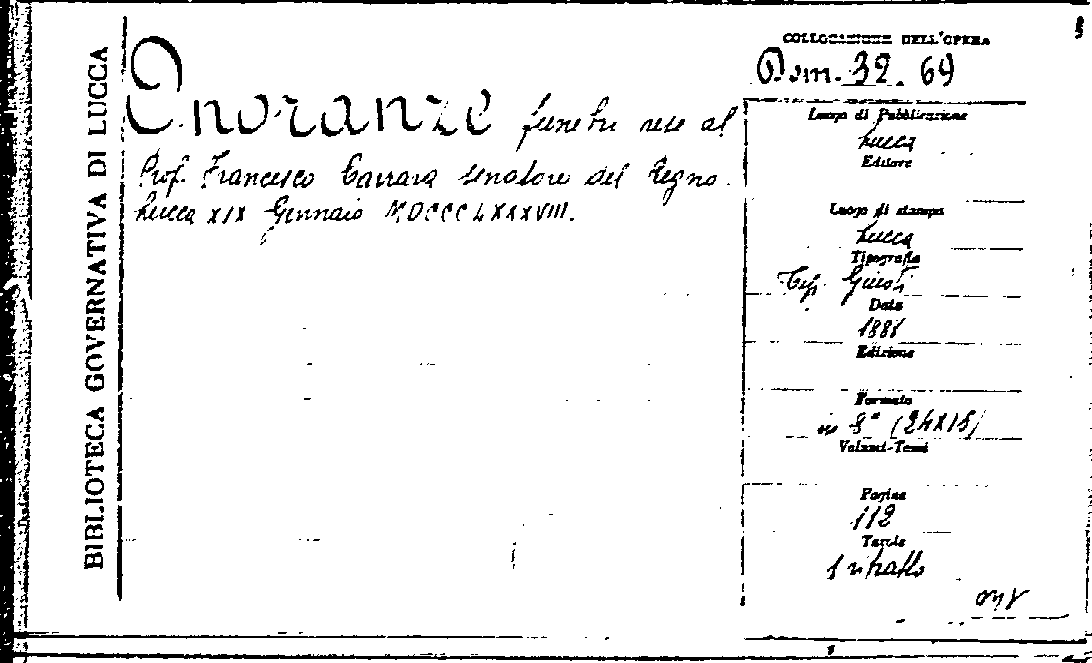 BIBLIOTECA GOVERNATIVA DI LUCCA
Onoranze funebri rese al
Prof. Francesco Carrara senatore del Regno.
Lucca XIX Gennaio MDCCCLXXXVIII.
COLLOCAZIONE DELL'OPERA
Dom. 32. 69
Luogo di Pubblicazione
Lucca
Editore
Luogo di stampa
Lucca
Tipografia
Tip. Giusti
Data
1888
Edizione
Formato
in 8° (24X15)
Volumi-Tomi
Pagine
112
Tavole
1 ritratto